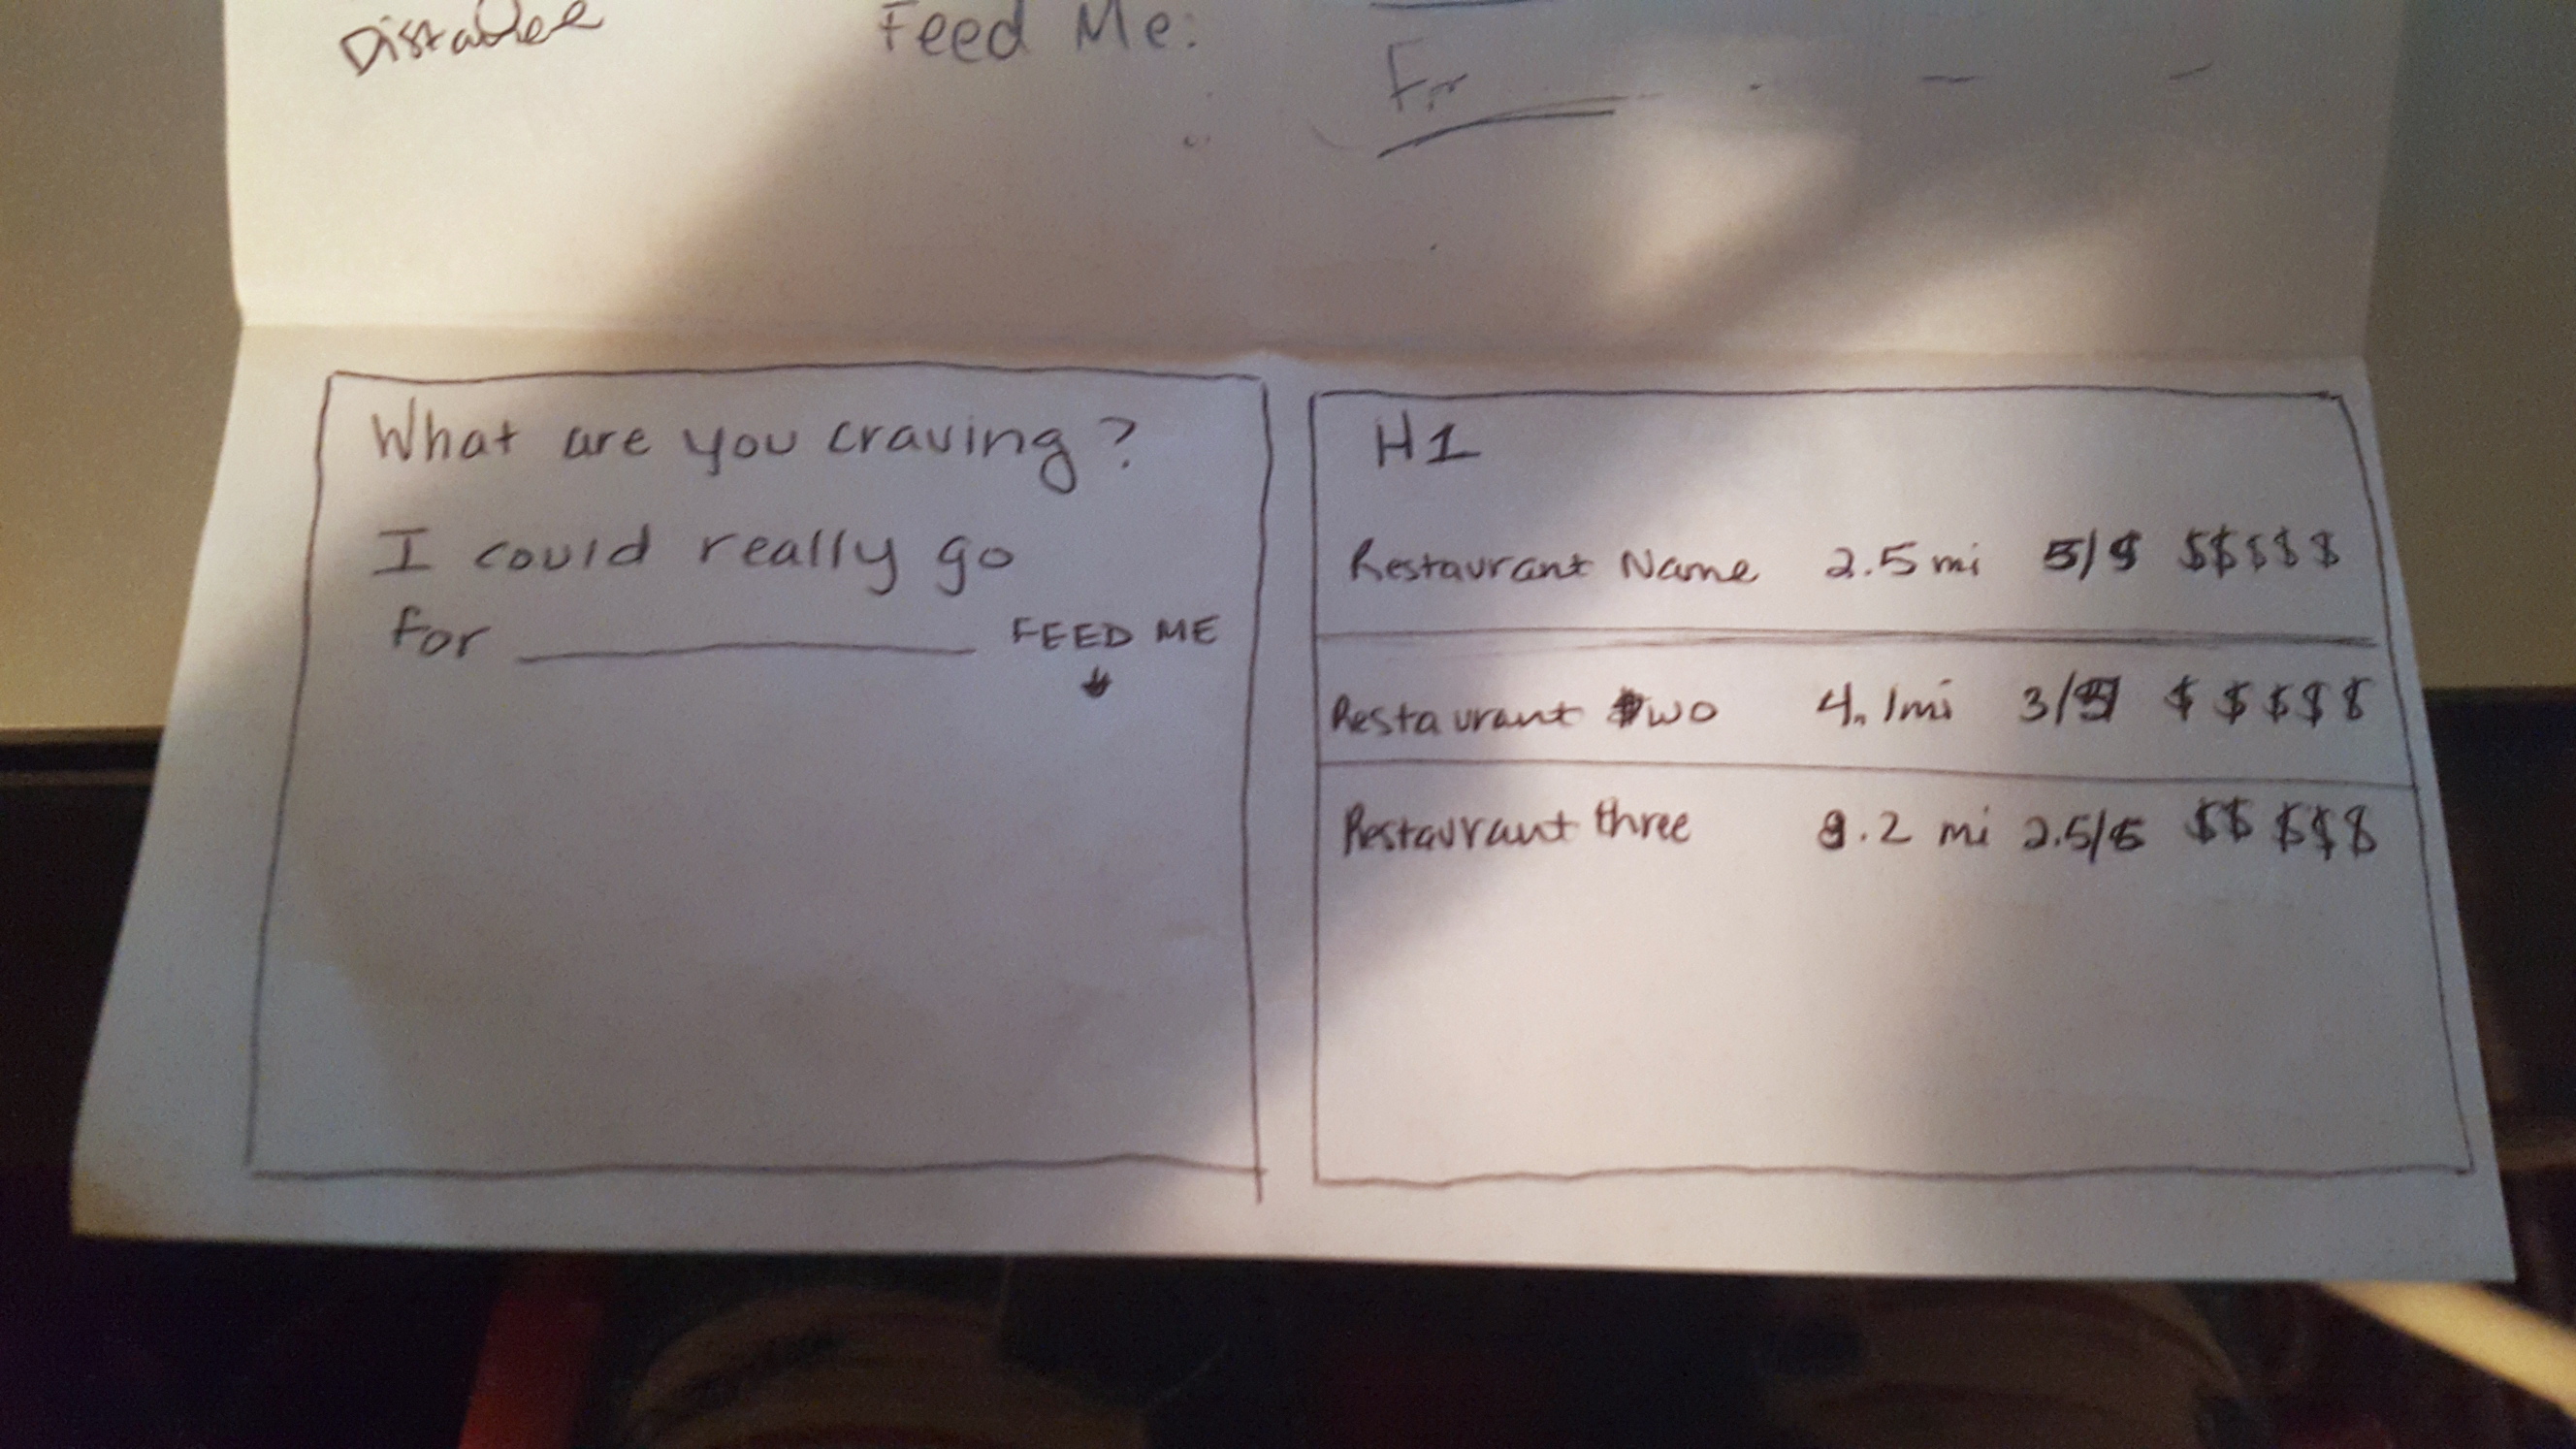 Distance
Feed Me:
For
What are you craving?
I could really go
for ____________ FEED ME
H1
Restaurant Name 2.5 mi 5/5 $$$$$
Restaurant two 4.1mi 3/5 $$$$$
Restaurant three 9.2 mi 2.5/5 $$$$$